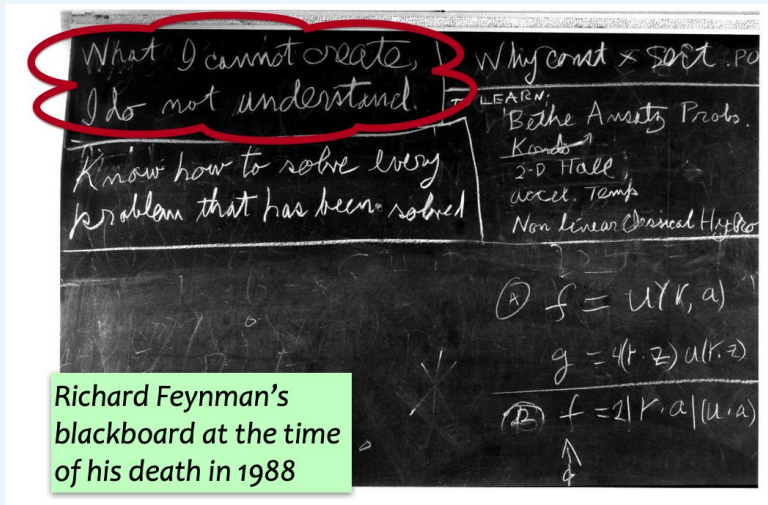 What I cannot create,
I do not understand.
Know how to solve every
problem that has been solved
Why const × sort . PO
TO LEARN:
Bethe Ansatz Probs.
Kondo
2-D Hall
accel. Temp
Non Linear Classical Hydro
(A) f = u(r, a)
g = 4(r·z) u(r·z)
(B) f = 2|r·a|(u·a)
Richard Feynman's
blackboard at the time
of his death in 1988